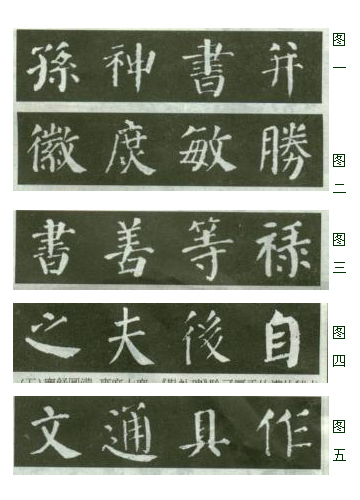 孫 神 書 并 图一
徽 敏 勝 图二
書 善 等 禄 图三
之 夫 後 自 图四
文 通 具 作 图五